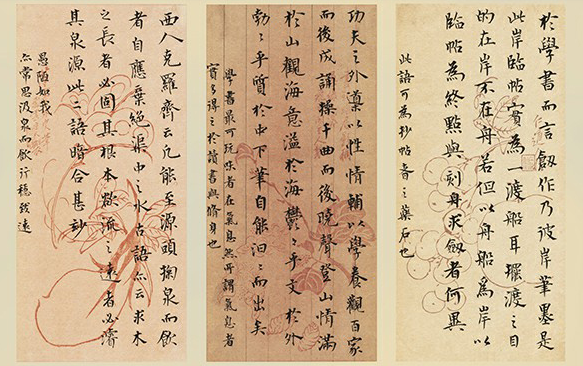 於學書而言創作乃彼岸筆墨是
此岸臨帖實為一渡船耳擺渡之目
的在岸不在舟若但以舟船為岸以
臨帖為終點與刻舟求劍者何異
此語可為抄帖者之藥石也
功夫之外稟以性情輔以學養觀百家
而後成誦操千曲而後曉聲登山情滿
於山觀海意溢於海鬱〻乎文於外
勃〻乎質於中下筆自能汩〻而出矣
學書最可玩味者在氣息然所謂氣息者
實多得之於讀書與脩身也
西人克羅齊云凡能至源頭掬泉而飲
者自應棄絕渠中之水古語亦云求木
之長者必固其根本欲流之遠者必濬
其泉源此二語暗合甚妙
愚陋如我
亦常思汲泉而飲行穩致遠